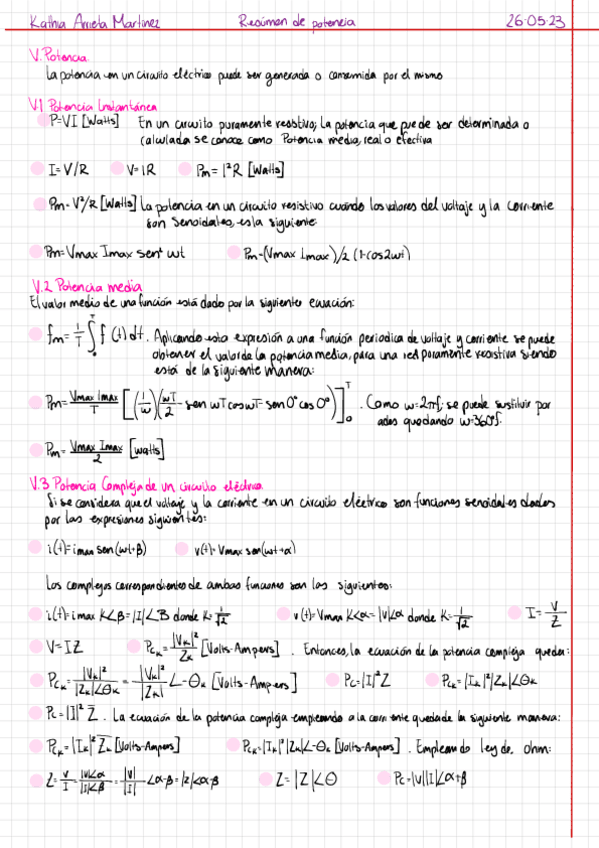 Kathia Arrieta Martinez Resúmen de potencia 26·05·23
V. Potencia.
La potencia en un circuito eléctrico puede ser generada o consumida por el mismo
V.1 Potencia Instantánea
P=VI [Watts] En un circuito puramente resistivo, la potencia que puede ser determinada o
calculada se conoce como Potencia media, real o efectiva
I=V/R V=IR Pm=I²R [Watts]
Pm=V²/R [Watts] La potencia en un circuito resistivo cuando los valores del voltaje y la corriente
son Senoidales, es la siguiente:
Pm=Vmax Imax sen² wt Pm=(Vmax Imax)/2 (1-cos2wt)
V.2 Potencia media
El valor medio de una función está dado por la siguiente ecuación:
fm=1/T ∫₀ᵀ f(t)dt. Aplicando esta expresión a una función periodica de voltaje y corriente se puede
obtener el valor de la potencia media, para una red puramente resistiva siendo
está de la siguiente manera:
Pm=Vmax Imax/T [(1/w)(wT/2 - sen wT cos wT - sen 0° cos 0°)]₀ᵀ. Como w=2πf; se puede sustituir por
ados quedando w=360°f.
Pm=Vmax Imax/2 [watts]
V.3 Potencia Compleja de un circuito eléctrico.
Si se considera que el voltaje y la corriente en un circuito eléctrico son funciones senoidales dados
por las expresiones siguientes:
i(t)=imax sen(wt+β) v(t)=Vmax sen(wt+α)
Los complejos correspondientes de ambas funciones son las siguientes:
i(t)=imax K∠β=|I|∠β donde K=1/√2 v(t)=Vmax K∠α=|V|∠α donde K=1/√2 I=V/Z
V=IZ Pcₖ=|Vₖ|²/Zₖ [Volts-Ampers]. Entonces, la ecuación de la potencia compleja queda:
Pcₖ=|Vₖ|²/|Zₖ|∠θₖ=|Vₖ|²/|Zₖ|∠-θₖ [Volts-Ampers] Pc=|I|²Z Pcₖ=|Iₖ|²|Zₖ|∠θₖ
Pc=|I|² Z̄. La ecuación de la potencia compleja empleando a la corriente queda de la siguiente manera:
Pcₖ=|Iₖ|² Z̄ₖ [Volts-Ampers] Pcₖ=|Iₖ|²|Zₖ|∠-θₖ [Volts-Ampers]. Empleando ley de ohm:
Z=V/I=|V|∠α/|I|∠β=|V|/|I|∠α-β=|Z|∠α-β Z=|Z|∠θ Pc=|V||I|∠α+β